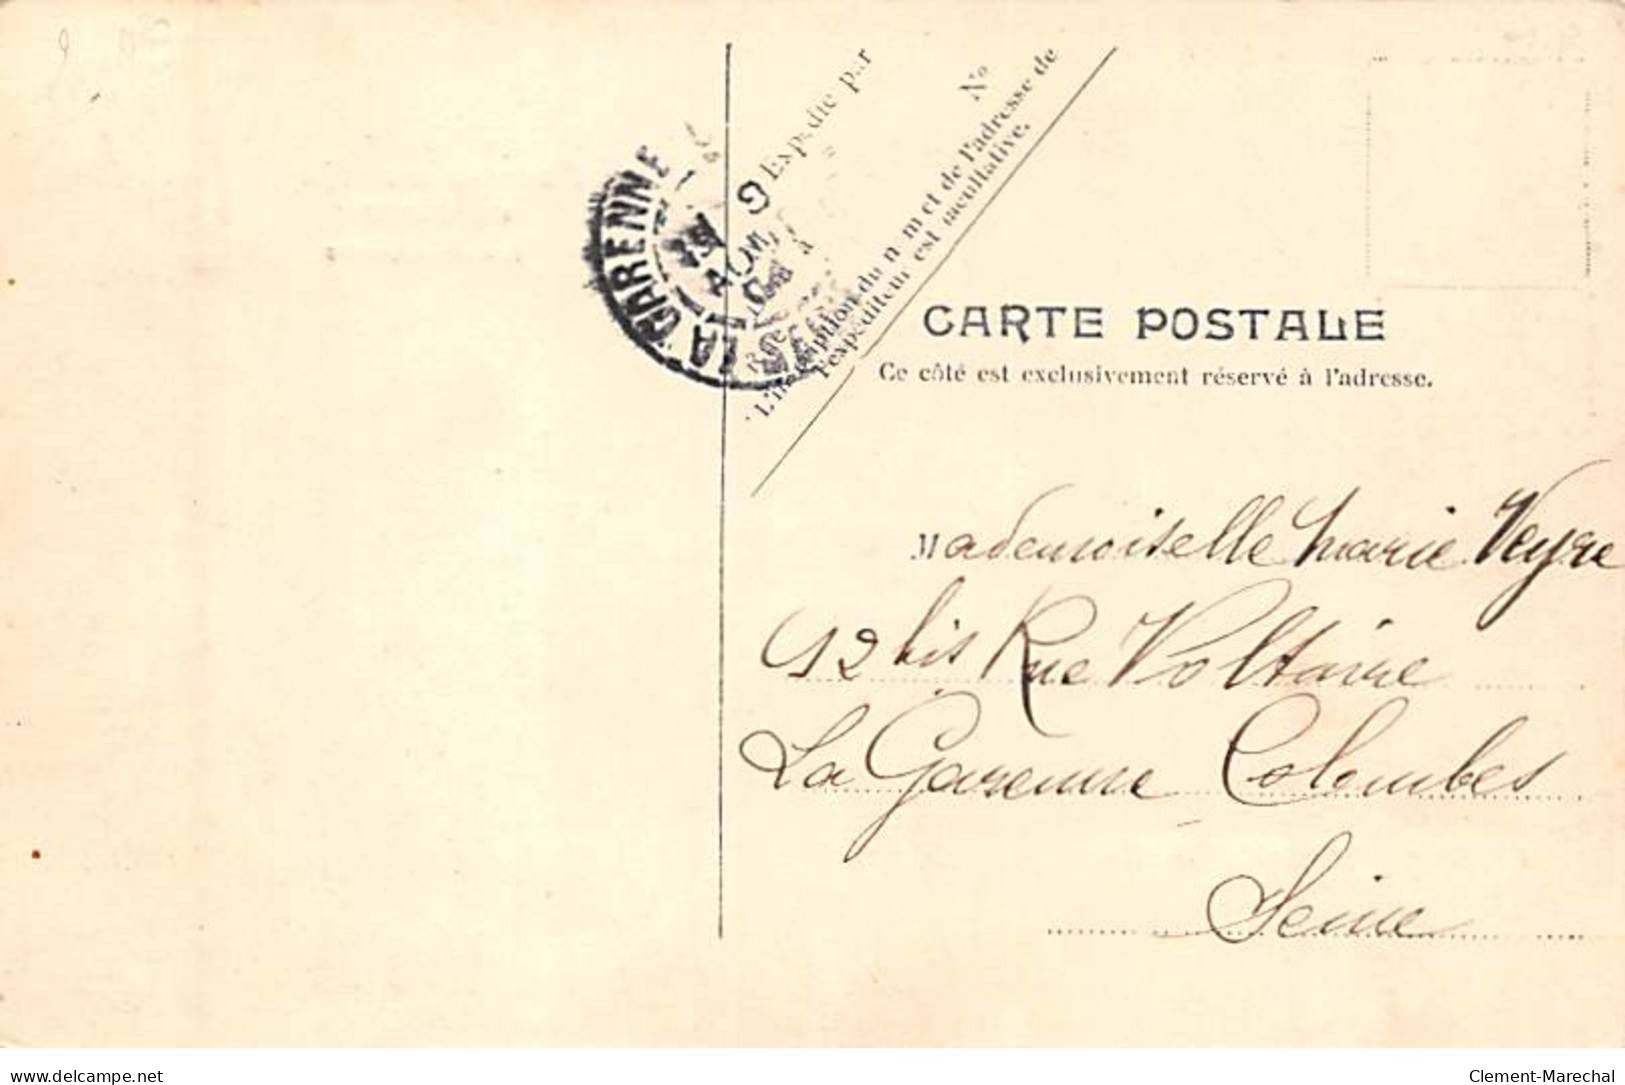 Expédié par
No
L'inscription du nom et de l'adresse de
l'expéditeur est facultative.
LA GARENNE
CARTE POSTALE
Ce côté est exclusivement réservé à l'adresse.
Mademoiselle Marie Veyre
12 bis Rue Voltaire
La Garenne Colombes
Seine
delcampe.net
Clement-Marechal